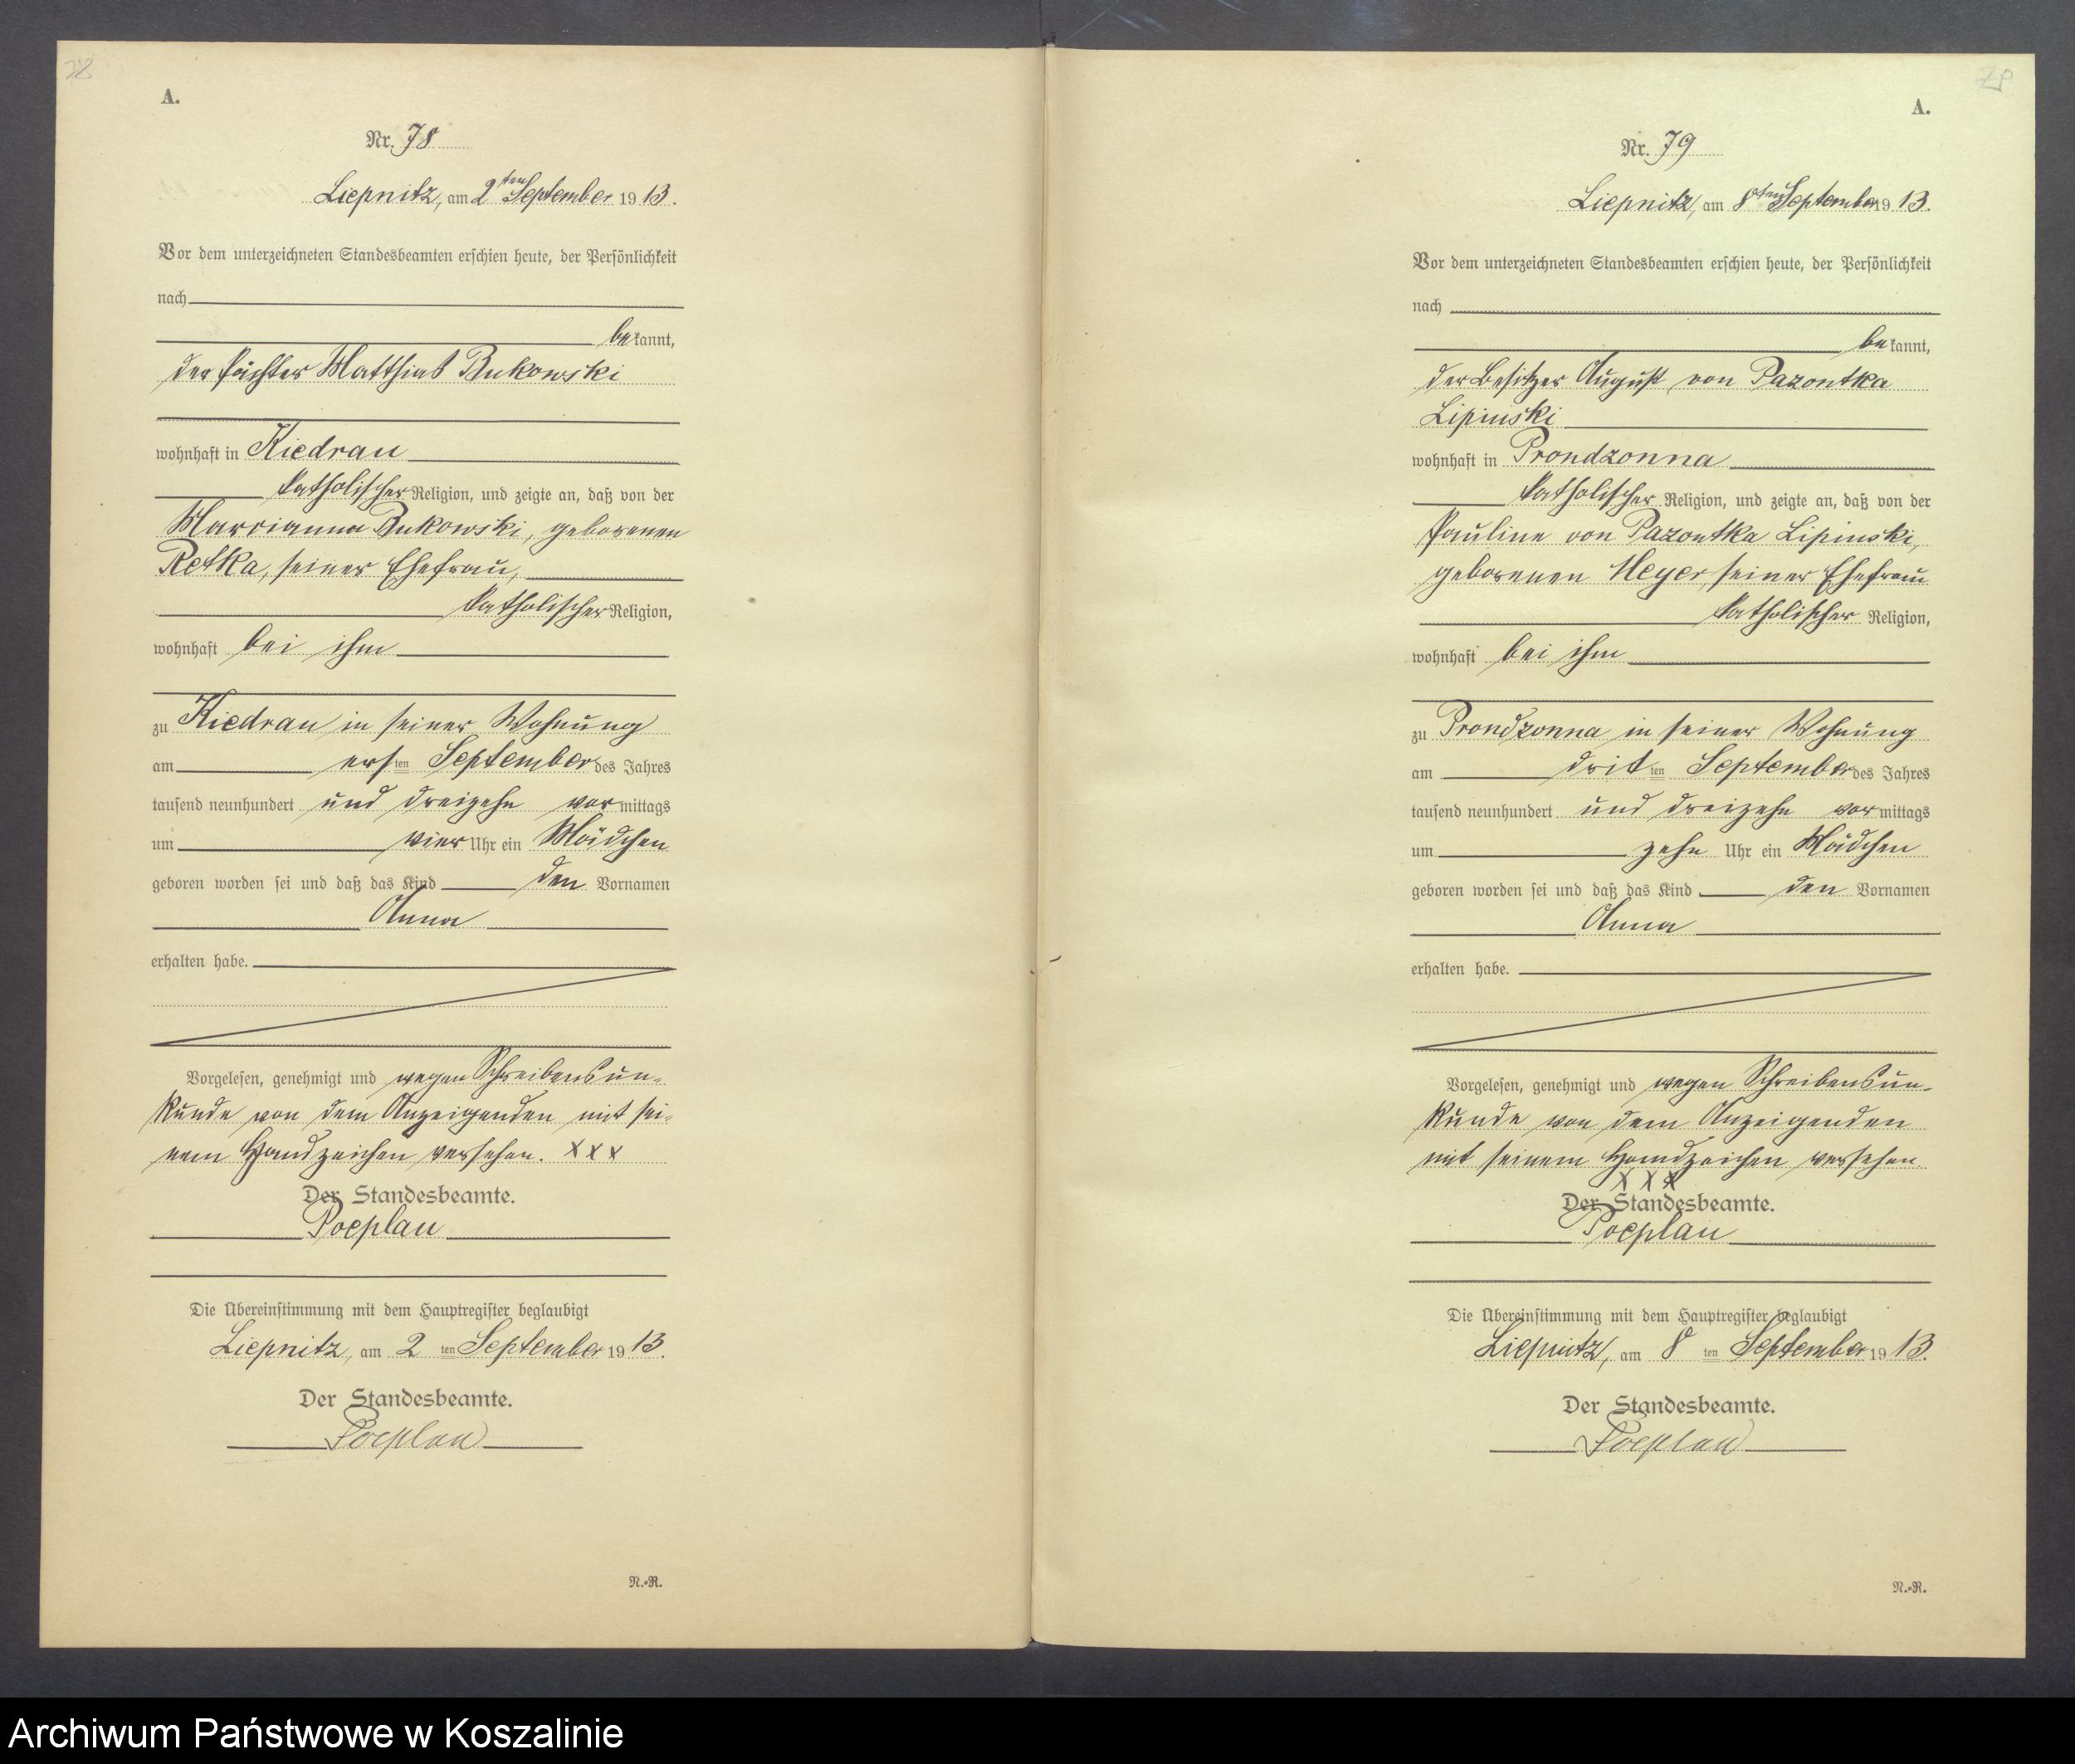 78
A.
Nr. 78
Liepnitz, am 2ten September 1913.
Vor dem unterzeichneten Standesbeamten erschien heute, der Persönlichkeit
nach
bekannt,
der Pächter Matthias Bukowski
wohnhaft in Kiedrau
katholischer Religion, und zeigte an, daß von der
Marrianna Bukowski, geborenen
Retka, seiner Ehefrau,
katholischer Religion,
wohnhaft bei ihm
zu Kiedrau in seiner Wohnung
am ersten September des Jahres
tausend neunhundert und dreizehn vormittags
um vier Uhr ein Mädchen
geboren worden sei und daß das Kind den Vornamen
Anna
erhalten habe.
Vorgelesen, genehmigt und wegen Schreibensun-
kunde von dem Anzeigenden mit sei-
nem Handzeichen versehen. XXX
Der Standesbeamte.
Poeplau
Die Übereinstimmung mit dem Hauptregister beglaubigt
Liepnitz, am 2ten September 1913.
Der Standesbeamte.
Poeplau
N.-R.
A.
Nr. 79
Liepnitz, am 8ten September 1913.
Vor dem unterzeichneten Standesbeamten erschien heute, der Persönlichkeit
nach
bekannt,
der Besitzer August von Pazontka
Lipinski
wohnhaft in Prondzonna
katholischer Religion, und zeigte an, daß von der
Pauline von Pazontka Lipinski,
geborenen Meyer, seiner Ehefrau
katholischer Religion,
wohnhaft bei ihm
zu Prondzonna in seiner Wohnung
am dritten September des Jahres
tausend neunhundert und dreizehn vormittags
um zehn Uhr ein Mädchen
geboren worden sei und daß das Kind den Vornamen
Anna
erhalten habe.
Vorgelesen, genehmigt und wegen Schreibensun-
kunde von dem Anzeigenden
mit seinem Handzeichen versehen
XXX
Der Standesbeamte.
Poeplau
Die Übereinstimmung mit dem Hauptregister beglaubigt
Liepnitz, am 8ten September 1913.
Der Standesbeamte.
Poeplau
N.-R.
Archiwum Państwowe w Koszalinie